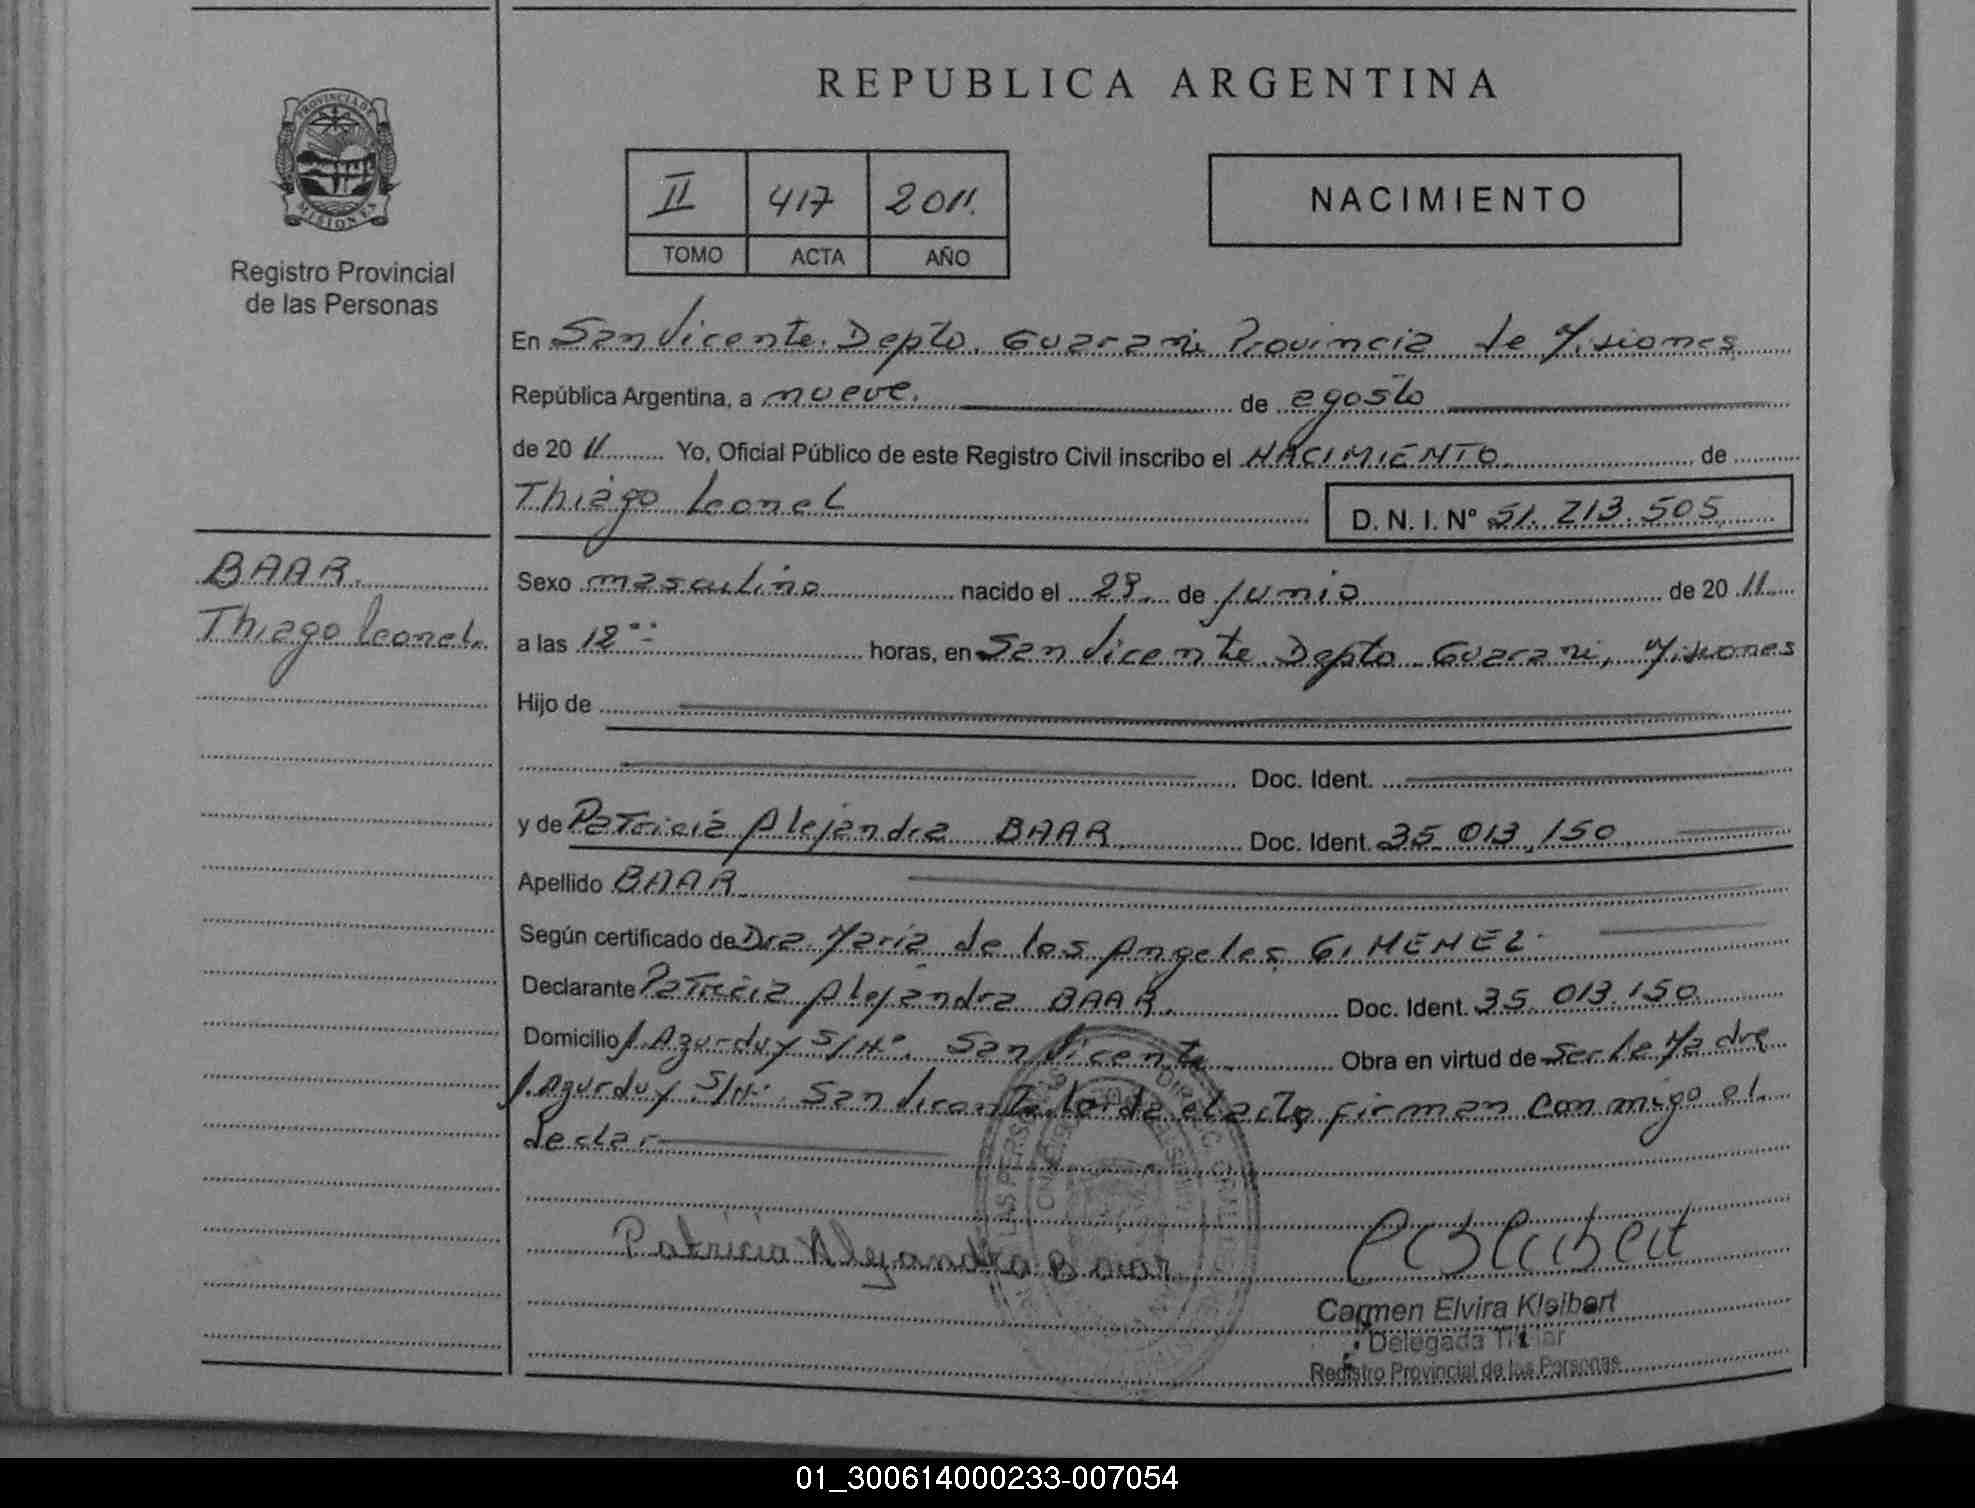 REPUBLICA ARGENTINA
PROVINCIA DE
MISIONES
Registro Provincial
de las Personas
II 417 2011.
TOMO ACTA AÑO
NACIMIENTO
En San Vicente. Depto. Guarani Provincia de Misiones
República Argentina, a nueve. de agosto
de 2011 Yo, Oficial Público de este Registro Civil inscribo el NACIMIENTO. de
Thiago Leonel
D. N. I. Nº 51.213.505
BAAR.
Thiago Leonel.
Sexo masculino nacido el 29. de junio de 2011
a las 12 horas, en San Vicente Depto Guarani, Misiones
Hijo de
Doc. Ident.
y de Patricia Alejandra BAAR Doc. Ident. 35.013.150
Apellido BAAR
Según certificado de Dra. Maria de los Angeles GIMENEZ
Declarante Patricia Alejandra BAAR. Doc. Ident. 35.013.150
Domicilio J. Azurduy S/Nº. San Vicente Obra en virtud de ser la Madre
J. Azurduy S/Nº. San Vicente Leida el acta, firman conmigo el
declar
Patricia Alejandra Baar
Carmen Elvira Kleibert
Delegada Titular
Registro Provincial de las Personas
01_300614000233-007054